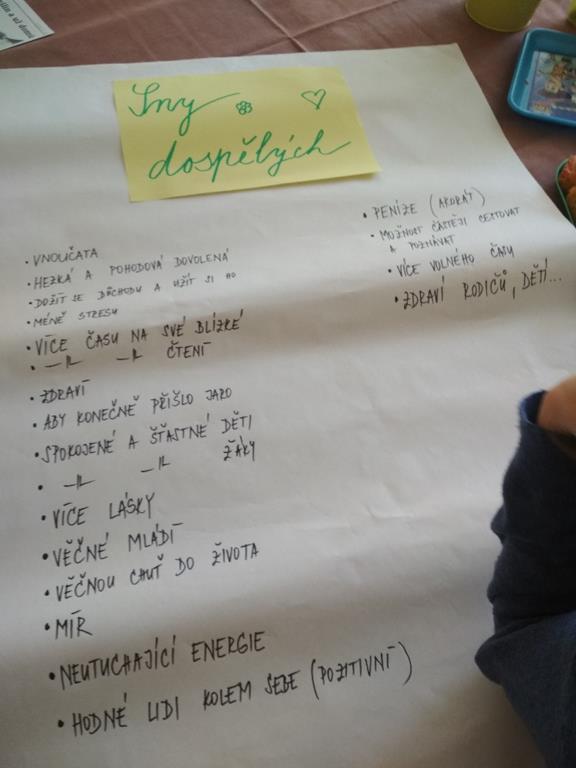 Sny
dospělých
• VNOUČATA
• HEZKÁ A POHODOVÁ DOVOLENÁ
• DOŽÍT SE DŮCHODU A UŽÍT SI HO
• MÉNĚ STRESU
• VÍCE ČASU NA SVÉ BLÍZKÉ
• –||– –||– ČTENÍ
• ZDRAVÍ
• ABY KONEČNĚ PŘIŠLO JARO
• SPOKOJENÉ A ŠŤASTNÉ DĚTI
• –||– –||– ŽÁKY
• VÍCE LÁSKY
• VĚČNÉ MLÁDÍ
• VĚČNOU CHUŤ DO ŽIVOTA
• MÍR
• NEUTUCHAJÍCÍ ENERGIE
• HODNÉ LIDI KOLEM SEBE (POZITIVNÍ)
• PENÍZE (AKORÁT)
• MOŽNOST ČASTĚJI CESTOVAT
A POZNÁVAT
• VÍCE VOLNÉHO ČASU
• ZDRAVÍ RODIČŮ, DĚTÍ...